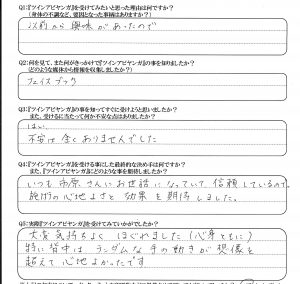 Q1:『ツインアビヤンガ』を受けてみたいと思った理由は何ですか?
(身体の不調など、要因となった事柄はありますか?)
以前から興味があったので
Q2:何を見て、また何がきっかけで『ツインアビヤンガ』の事を知りましたか?
(どのような媒体から情報を収集しましたか?)
フェイスブック
Q3:『ツインアビヤンガ』の事を知ってすぐに受けようと思いましたか?
また、受けるに当たって何か不安な点はありましたか?
はい。
不安は全くありませんでした
Q4:『ツインアビヤンガ』を受ける事にした最終的な決め手は何ですか?
また、『ツインアビヤンガ』にどのような事を期待しましたか?
いつも市原さんにお世話になっていて、信頼しているので。
施術の心地よさと効果を期待しました。
Q5:実際『ツインアビヤンガ』を受けてみていかがでしたか?
大変気持ちよく ほぐれました(心身ともに)
特に背中は ランダムな手の動きが想像を
超えて心地よかったです